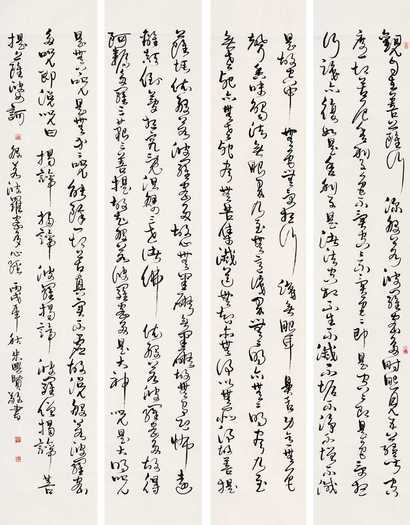 觀自在菩薩行深般若波羅蜜多時照見五蘊皆空
度一切苦厄舍利子色不異空空不異色色即是空空即是色受想
行識亦復如是舍利子是諸法空相不生不滅不垢不淨不增不減
是故空中無色無受想行識無眼耳鼻舌身意無色
聲香味觸法無眼界乃至無意識界無無明亦無無明盡乃至
無老死亦無老死盡無苦集滅道無智亦無得以無所得故菩提
薩埵依般若波羅蜜多故心無罣礙無罣礙故無有恐怖遠
離顛倒夢想究竟涅槃三世諸佛依般若波羅蜜多故得
阿耨多羅三藐三菩提故知般若波羅蜜多是大神咒是大明咒
是無上咒是無等等咒能除一切苦真實不虛故說般若波羅蜜
多咒即說咒曰 揭諦 揭諦 波羅揭諦 波羅僧揭諦 菩
提薩婆訶 般若波羅蜜多心經 丙戌年秋 朱興賢敬書